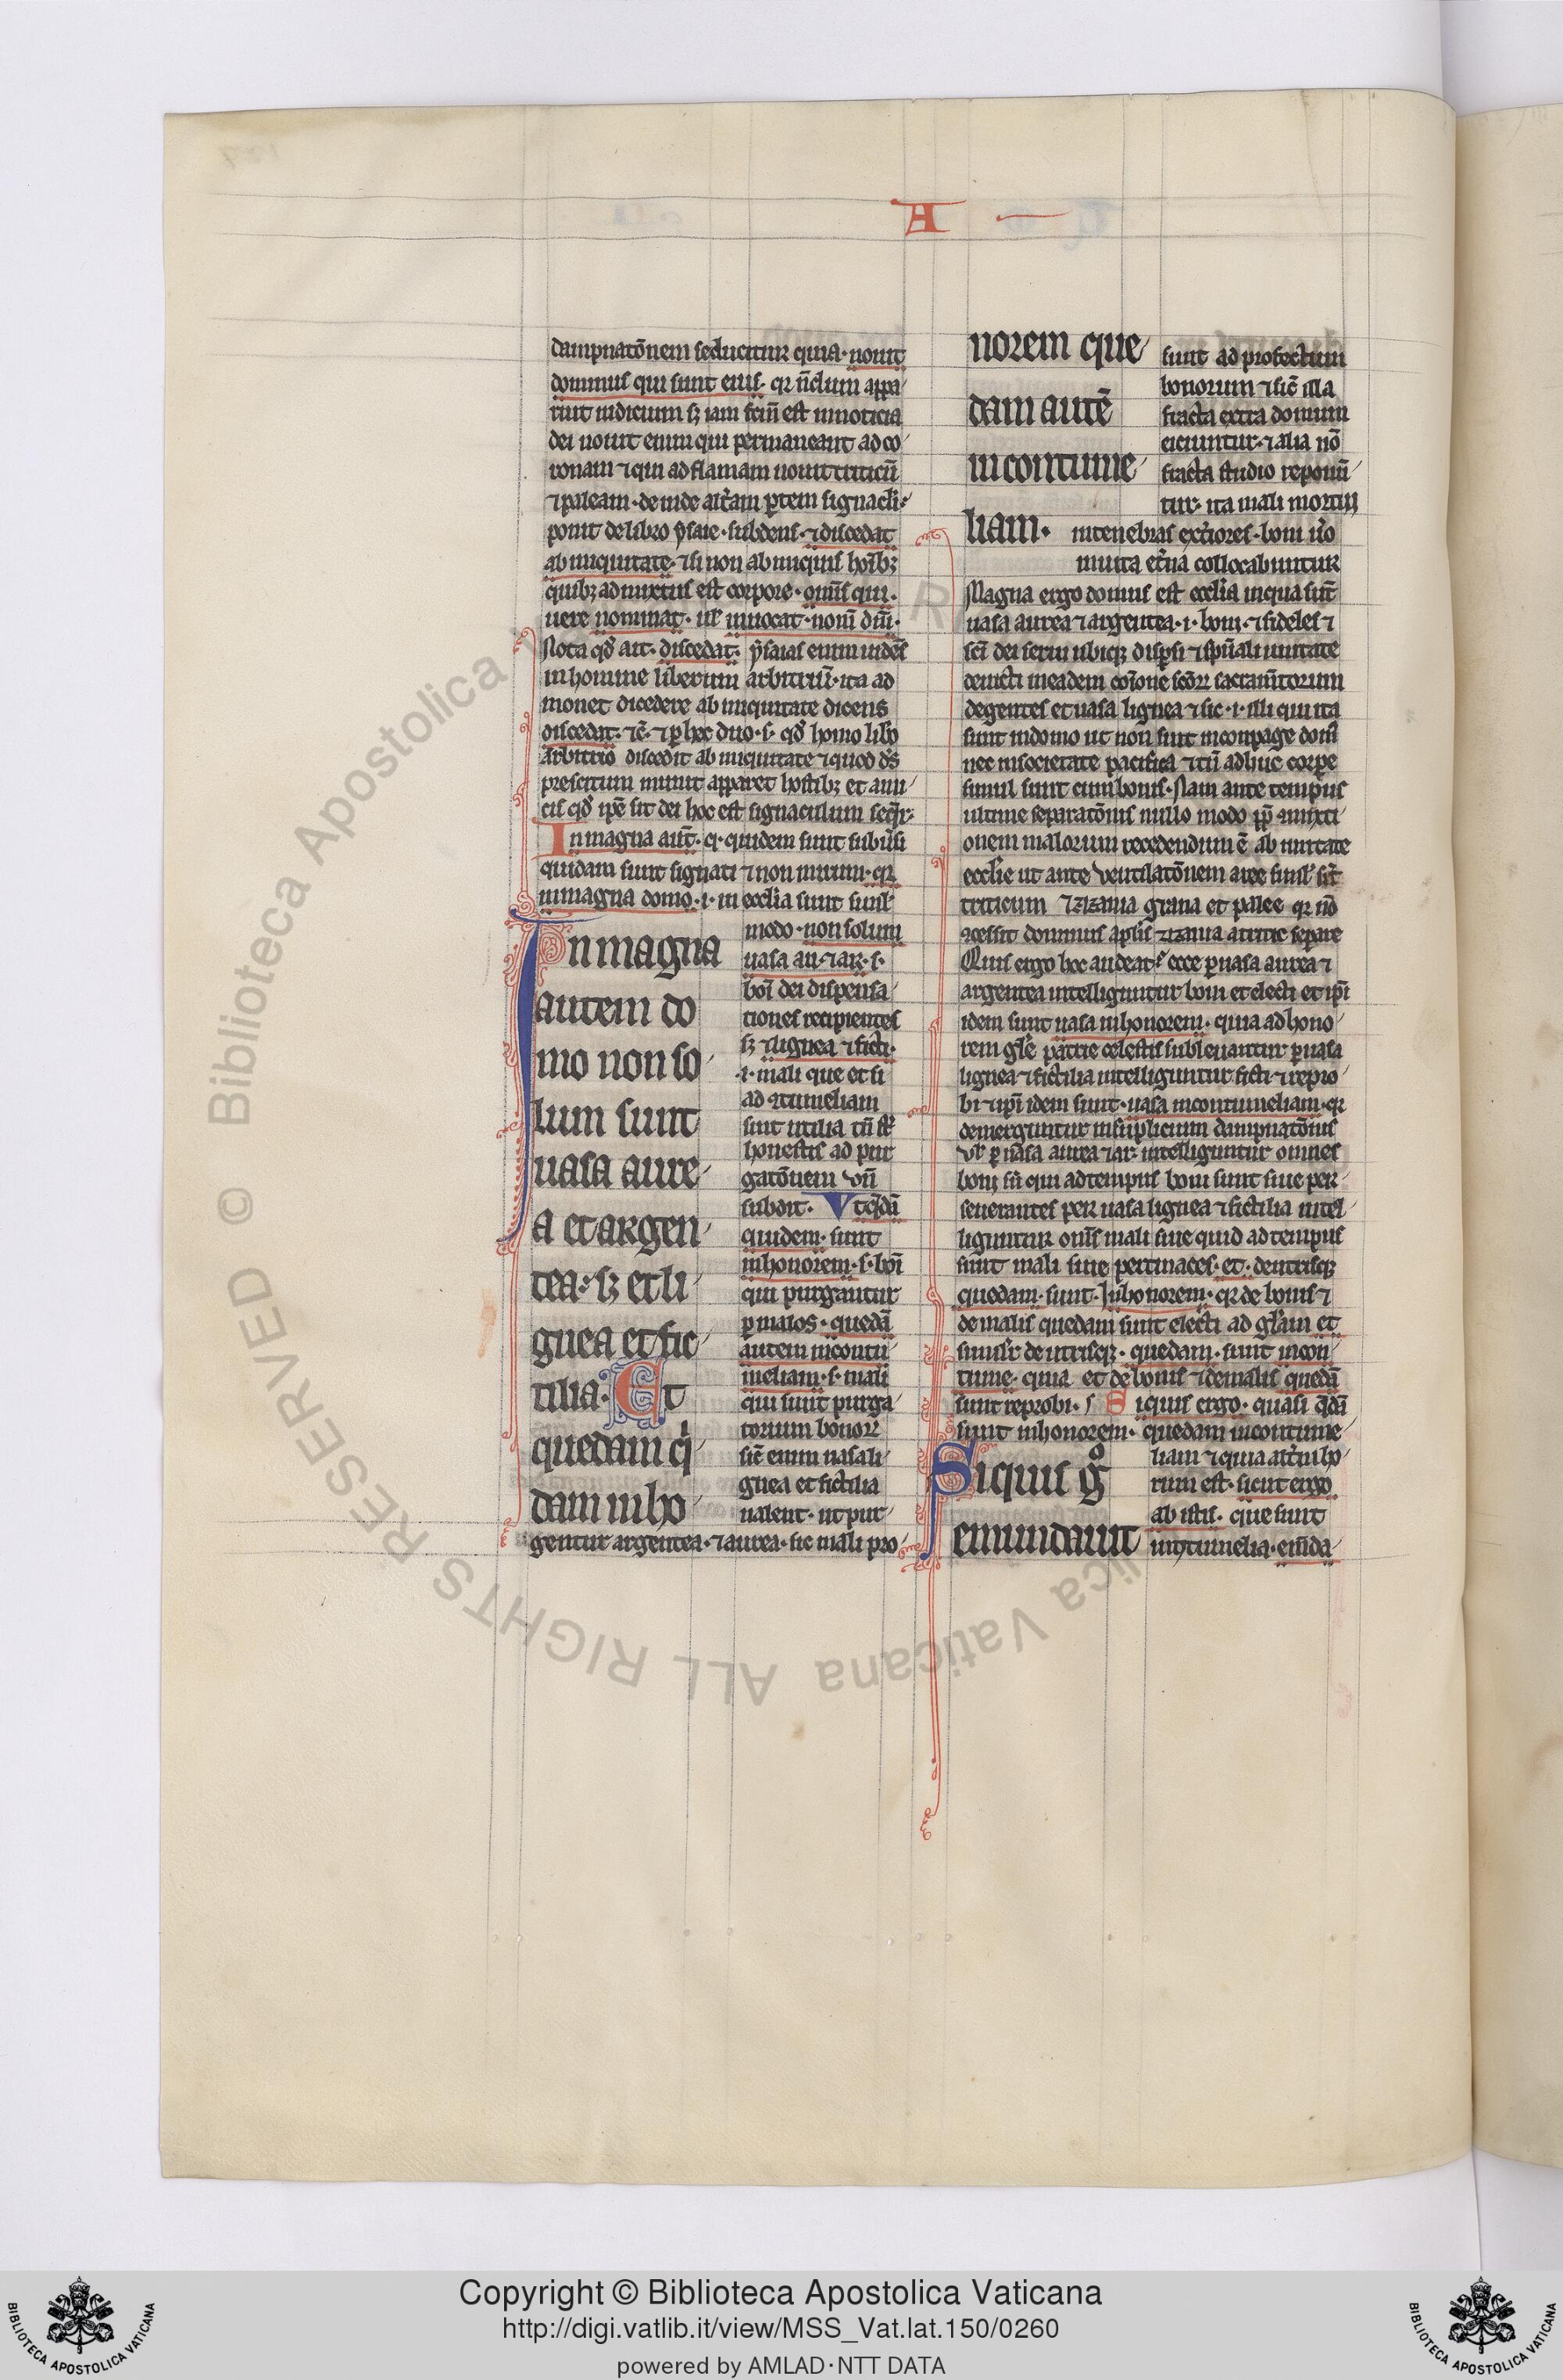 A
dampnatōnem seducitur quia · nouit
dominus qui sunt eius · qr n̄dum appa
ruit iudicium sꝫ iam scm̄ est innoticia
dei nouit enim qui permaneant ad co
ronam ⁊ qui ad flamam nouit triticū
⁊ paleam · deinde alt̄am ptem signacli
ponit de libro ysaie · subdens · ⁊ discedat
ab iniquitate · ⁊ si non ab iniquis hoībꝫ
quibꝫ ad mixtus est corpore · omīs qui ·
uere nominat · ul̄ inuocat · nom̄ dn̄i ·
Nota qđ ait · discedat · ysaias enim uidēs
in homine liberum arbitriū · ita ad
monet dicedere ab iniquitate dicens
discedat · ⁊c̄ · ⁊ p hec duo · s · qđ homo libo
arbitrio discedit ab iniquitate ⁊ quod ds̄
prescitum muniit apparet hostibꝫ et ami
cis qđ ipē sit dei hoc est signaculum seqr
In magna aūt · q · quidem sunt subūsi
quidam sunt signati ⁊ non mirum · qr
in magna domo · i · in ecclīa sunt simł
In magna
autem do
mo non so
lum sunt
uasa aure
a et argen
tea · sꝫ et li
gnea et fic
tilia · Et
quedam q̄
dam in ho
modo · non solum
uasa au · ⁊ ar · s ·
boī dei dispensa
tiones recipientes
sꝫ ⁊ lignea ⁊ ficti ·
· i · mali que et si
ad ꝯtumeliam
sint utilia tn̄
honestis ad pur
gatōnem vn̄
subdit · Vt qdā
quidem · sunt
in honorem · s · boī
qui purgantur
p malos · quedā
autem in contu
meliam · s · mali
qui sunt purga
torium bonoꝝ
sic̄ enim uasa li
gnea et fictilia
ualent · ut pur
gentur argentea · ⁊ aurea · sic mali pro
norem que
dam autē
in contume
liam ·
sunt ad profectum
bonorum ⁊ sic̄ illa
fracta extra domum
eiciuntur · ⁊ alia nō
fracta studio reponū
tur · ita mali mortui
in tenebras ext̄iores · boni ūo
in uita et̄na collocabuntur
Magna ergo domus est ecclīa in qua sūt
uasa aurea ⁊ argentea · i · boni · ⁊ fideles ⁊
sc̄i dei serui ubiqꝫ dispsi ⁊ spūali unitate
deuicti in eadem coīone scōꝝ sacramītorum
degentes et uasa lignea ⁊ fic · i · illi qui ita
sunt in domo ut non sint in conpage dom̄
nec in societate pacifica ⁊ tn̄ adhuc corpe
simul sunt cum bonis · Nam ante tempus
ultime separatōnis nullo modo pp ꝯmixti
onem malorum recedendum ē ab unitate
ecclīe ut ante ventilatōnem aree simł sīt
triticum ⁊ zizania grana et palee qr nō
ꝯcessit dominus aplis zizania a tritic separe
Quis ergo hoc audeat ecce p uasa aurea ⁊
argentea intelliguntur boni et electi et ipī
idem sunt uasa in honorem · quia ad hono
rem gle patrie celestis subleuantur p uasa
lignea ⁊ fictilia intelliguntur ficti ⁊ repro
bi ⁊ ipī idem sunt · uasa in contumeliam · qr
demerguntur in suplicium dampnatōnis
Vl̄ p uasa aurea ⁊ ar · intelliguntur omnes
boni siue qui ad tempus boni sunt siue per
seuerantes per uasa lignea ⁊ fictilia intel
liguntur om̄s mali siue quid ad tempus
sunt mali siue pertinaces · et · de utrisqꝫ
quedam · sunt · in honorem · qr de bonis ⁊
de malis quedam sunt electi ad glam et
simłr de utrisqꝫ · quedam · sunt in con
tume · quia et de bonis ⁊ de malis quedā
sunt reprobi · Siquis ergo · quasi qdā
sunt in honorem · quedam in contume
Siquis g̊
emundauit
liam ⁊ quia
rum est · sicut ergo
ab istis · que sunt
in ꝯtumelia · em̄da
© Biblioteca Apostolica Vaticana ALL RIGHTS RESERVED
Copyright © Biblioteca Apostolica Vaticana
http://digi.vatlib.it/view/MSS_Vat.lat.150/0260
powered by AMLAD·NTT DATA
BIBLIOTECA APOSTOLICA VATICANA
BIBLIOTECA APOSTOLICA VATICANA